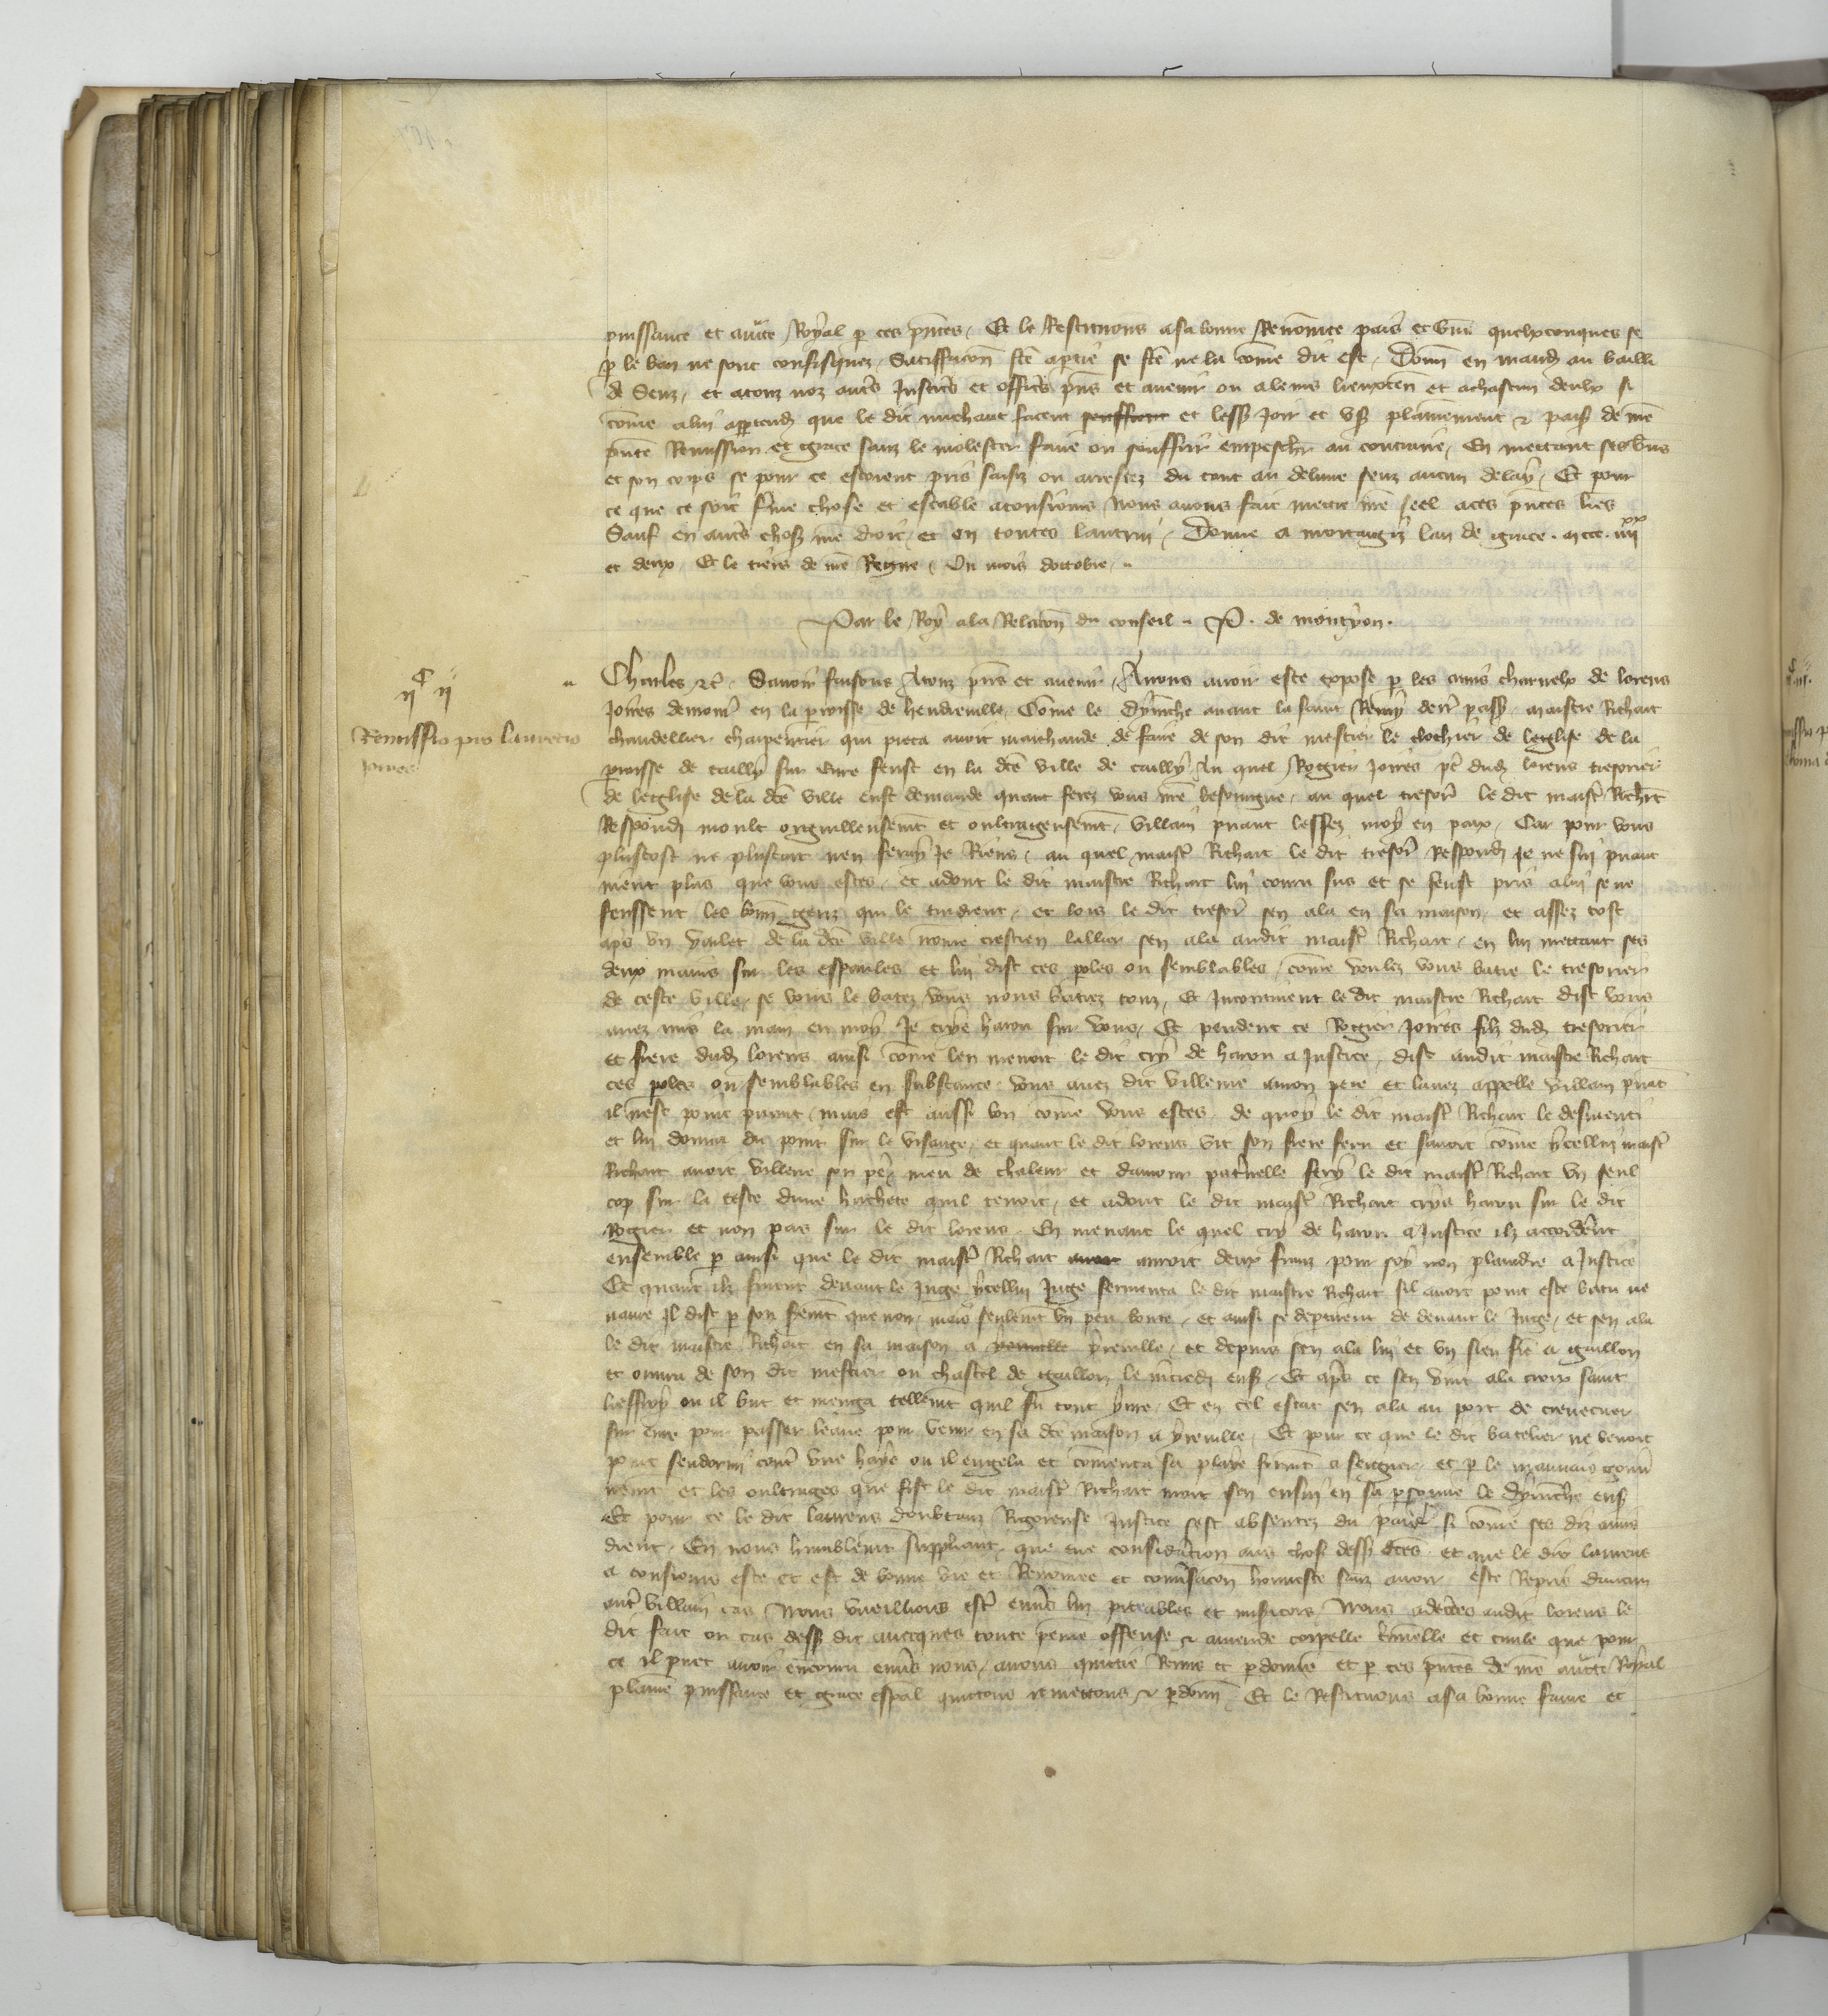 puissance et aucte Royal p ces pntes Et le Restituons a sa bonne Renomee pais et bns quelxconques se
p le ban ne sont confisquez Satiffacon fte aptie se fte ne la come dit est Donn en mand au bailli
de Senz et atouz noz autes Justices et offices pns et avenir ou aleurs lieuxten et achascun deulx si
come alui aptend que le dit michaut facent seuffrent et less Joir et us plainement et pais de nre
pnte Remission et grace sanz le molester faire ou souffrir empescher au contraire En mettant ses bns
et son corps se pour ce estoient pris saisiz ou arrestez du tout au delivre senz aucun delay Et pour
ce que ce soit ferme chose et estable atousiours Nous avons fait mettre nre seel aces pntes lres
Sauf en autes chos nre droit et en toutes lautrui Donne a montargiz lan de grace m ccc iiii xx
et deux Et le tiers de nre Regne Ou mois doctobre
Par le Roy ala Relacon du conseil P. de montyon.
C ii ii
Remissio pro laurecio
joires
Charles etc Savoir faisons Atouz pns et avenir Avons avoir este expose p les amis charnelx de lorens
Joires demour en la proisse de hendreville Come le dymenche avant la saint Remy derr pass maistre Richart
chandellier charpentier qui pieca avoit marchande de faire de son dit mestier le clochier de leglise de la
proisse de cailly sur Eure feust en la dce ville de cailly Au quel Rogier Joires pe dud lorens tresorier
de leglise de la dce ville eust demande quant ferez vous nre besoingne au quel tresor le dit maist Richrt
Respondi moult orguilleusemt et oultrageusemt villain puant lessez moy en paix Car pour vous
plustost ne plustart nen feray Je Riens au quel maist Richart le dit tresor Respondi Je ne sui puant
nient plus que vous estes et adont le dit maistre Richart lui couru sus et se feust pris alui se ne
feussent les bonn genz qui le tindrent et lors le dit tresor sen ala en sa maison et assez tost
apres un varlet de la dce ville nome crestien lallier sen ala audit maist Richart en lui mettant ses
deux mains sur les espaules et lui dist ces poles ou semblables come voulez vous batre le tresorier
de ceste ville se vous le batez vous nous batrez touz Et Incontinent le dit maistre Richart dist vous
avez mis la main en moy Je crye harou sur vous Et pendent ce Rogier Joires filz dud tresorier
et frere dud lorens ainsi come len menoit le dit cry de harou a Justice dist audit maistre Richart
ces poles ou semblables en substance vous avez dit villenie amon pere et lavez appelle villain puant
il nest point puant mais est aussi bon come vous estes de quoy le dit maist Richart le desmenti
et lui donna du poing sur le visaige et quant le dit lorens vit son frere feru et savoit come ycellui maist
Richart avoit villene son pere meu de chaleur et damour paternelle fery le dit maist Richart un seul
cop sur la teste dune hachete quil tenoit et adont le dit maist Richart crya harou sur le dit
Rogier et non pas sur le dit lorens En menant le quel cry de harou a Justice ilz accorderent
ensemble p ainsi que le dit maist Richart avoit auroit deux frans pour soy non plaindre a Justice
Et quant ilz furent devant le Juge ycellui Juge sermenta le dit maistre Richart sil avoit point este batu ne
navre Il dist p son serment que non mais seulemt un peu boute et ainsi se departirent de devant le Juge et sen ala
le dit maistre Richart en sa maison a yreville et depuis sen ala lui et un sien fre a gaillon
et ouvra de son dit mestier ou chastel de gaillon le mcredi ens Et apres ce sen vint ala croix saint
lieffroy ou il but et menga tellemt quil fu tout yvre Et en cel estat sen ala au port de crevecuer
sur eure pour passer leaue pour venir en sa dce maison a yreville Et pour ce que le dit batelier ne venoit
point sendormi contre une haye ou il engela et comenca sa playe formt a seigner et p le mauvais gouv
nemt et les oultrages que fist le dit maist Richart mort sen ensui en sa psonne le dymenche ens
Et pour ce le dit laurens doubtant Rigoreuse Justice sest absentez du pais si come ses diz amis
dient En nous humblemt suppliant que eue consideracion aus chos dess dces et que le dit laurens
a tousiours este et est de bonne vie et Renomee et convsacon honneste sanz avoir este Repris daucun
autre villain cas Nous vueillions estre envs lui piteables et misicors Nous adcetes audit lorens le
dit fait ou cas dess dit avecques toute peine offense et amende corpelle criminelle et civile que pour
ce il puet avoir encouru envs nous avons quitte Remis et pdonne et p ces pntes de nre aucte Royal
plaine puissance et grace espal quittons remettons et pdonn Et le Restituons asa bonne fame et